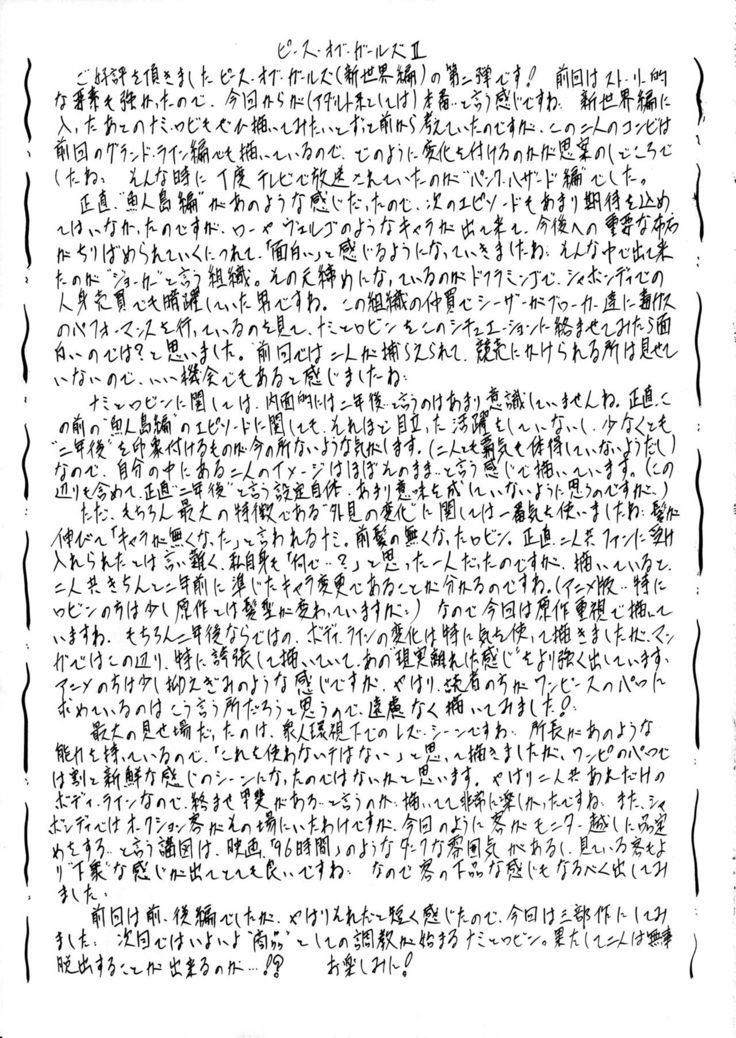 ピース・オブ・ガールズⅡ
ご好評を頂きましたピース・オブ・ガールズ(新世界編)の第二弾です! 前回はストーリー的
な要素も強かったので、今回からが(アダルト本としては)本番…と言う感じですね。新世界編に
入ったあとのナミ、ロビもぜひ描いてみたいとずっと前から考えていたのですが、この二人のコンビは
前回のグランド・ライン編でも描いているので、どのように変化を付けるのかが思案のしどころで
したね。そんな時に丁度テレビで放送されていたのが“パンク・ハザード編”でした。
正直、“魚人島編”があのような感じだったので、次のエピソードもあまり期待を込め
てはいなかったのですが、ローやヴェルゴのようなキャラが出て来て、今後への重要な布石
がちりばめられていくにつれて、「面白い」と感じるようになっていきましたね。そんな中で出て来
たのが“ジョーカー”と言う組織。その元締めになっているのがドフラミンゴで、シャボンディでの
人身売買でも暗躍していた男ですね。この組織の仲買でシーザーがブローカー達に毒ガス
のパフォーマンスを行っているのを見て、ナミとロビンをこのシチュエーションに絡ませてみたら面
白いのでは?と思いました。前回では二人が捕らえられて、競売にかけられる所は見せて
いないので、いい機会でもあると感じましたね。
ナミとロビンに関しては、内面的には二年後…と言うのはあまり意識していませんね。正直、こ
の前の“魚人島編”のエピソードに関しても、それほど目立った活躍をしていないし、少なくとも
“二年後”を印象付けるものが今の所ないような気がします。(二人とも覇気も体得していないようだし)
なので、自分の中にある二人のイメージはほぼそのまま…と言う感じで描いています。(この
辺りも含めて、正直“二年後”と言う設定自体、あまり意味を成していないように思うのですが…)
ただ、もちろん最大の特徴である“外見の変化”に関しては一番気を使いましたね。髪が
伸びて「キャラが無くなった」と言われるナミ。前髪の無くなったロビン。正直、二人共ファンに受け
入れられたとは言い難く、私自身も「何で…?」と思った一人だったのですが、描いていると、
二人共きちんと二年前に準じたキャラ変更であることが分かるのですね。(アニメ版…特に
ロビンの方は少し原作とは髪型が変わっていますが…) なので今回は原作重視で描いて
いますね。もちろん二年後ならではの、ボディ・ラインの変化は特に気を使って描きましたが、マン
ガではこの辺り、特に誇張して描いていて、あの“現実離れした感じ”をより強く出しています。
アニメの方は少し抑えぎみのような感じですが、やはり読者の方がワンピースのパロに
求めているのはこう言う所だろうと思うので、遠慮なく描いてみました!
最大の見せ場だったのは、衆人環視下でのレズ・シーンですね。所長があのような
能力を持っているので、「これを使わないテはない」と思って描きましたが、ワンピのパロで
は割と新鮮な感じのシーンになったのではないかと思います。やはり二人共あれだけの
ボディ・ラインなので、絡ませ甲斐がある…と言うのか、描いてて非常に楽しかったですね。また、シャ
ボンディではオークション客がその場にいたわけですが、今回のように客がモニター越しに品定
めをする…と言う講図は、映画、「96時間」のようなダークな雰囲気があるし、見ている客もよ
り“下衆”な感じが出てとても良いですね。なので客の下品な感じもなるべく出してみ
ました。
前回は前、後編でしたが、やはりそれだと短く感じたので、今回は三部作にしてみ
ました。次回ではいよいよ“商品”としての調教が始まるナミとロビン。果たして二人は無事
脱出することが出来るのか…!? お楽しみに!